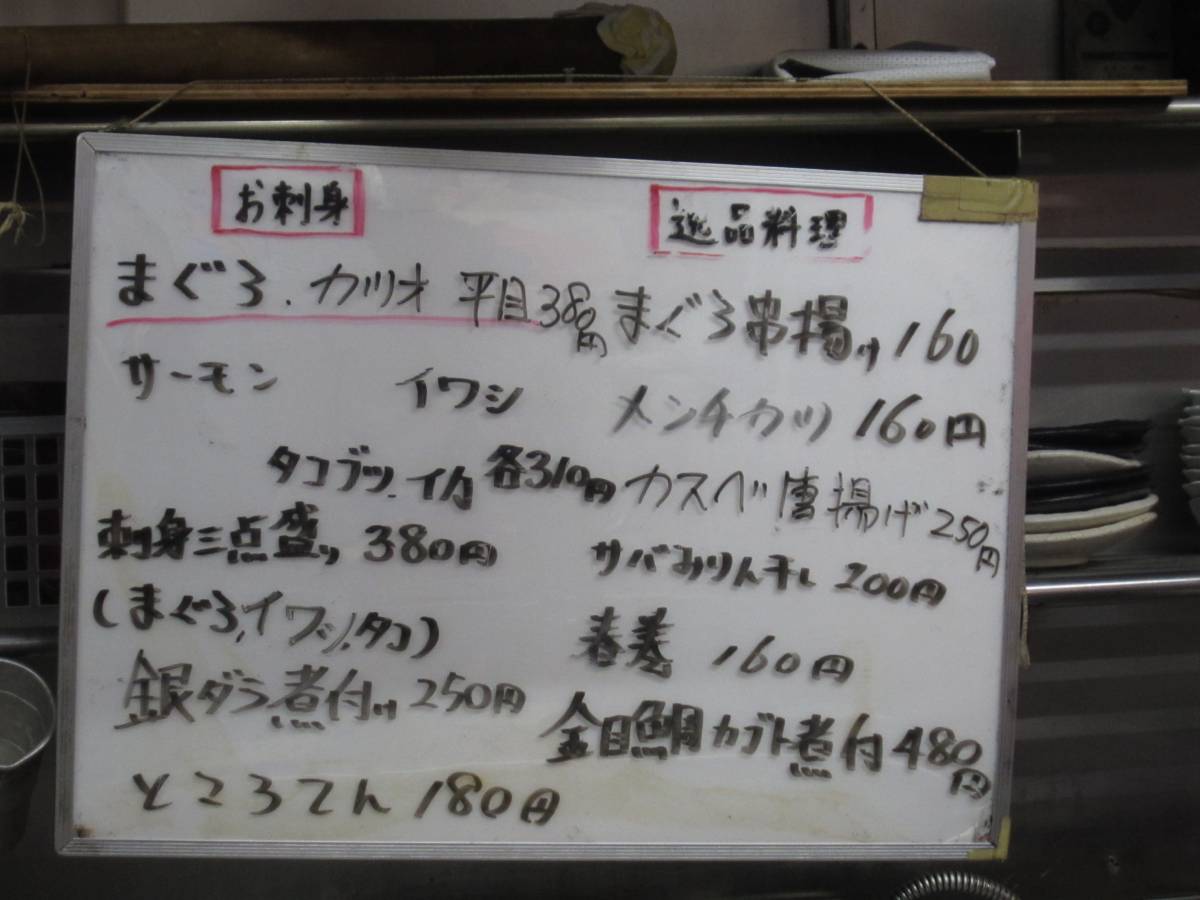 お刺身
まぐろ.カツオ 平目380円
サーモン イワシ
タコブツ.イカ 各310円
刺身三点盛り 380円
(まぐろ,イワシ,タコ)
銀ダラ煮付け 250円
ところてん 180円
逸品料理
まぐろ串揚げ 160
メンチカツ 160円
カスベ唐揚げ 250円
サバみりん干し 200円
春巻 160円
金目鯛カブト煮付 480円